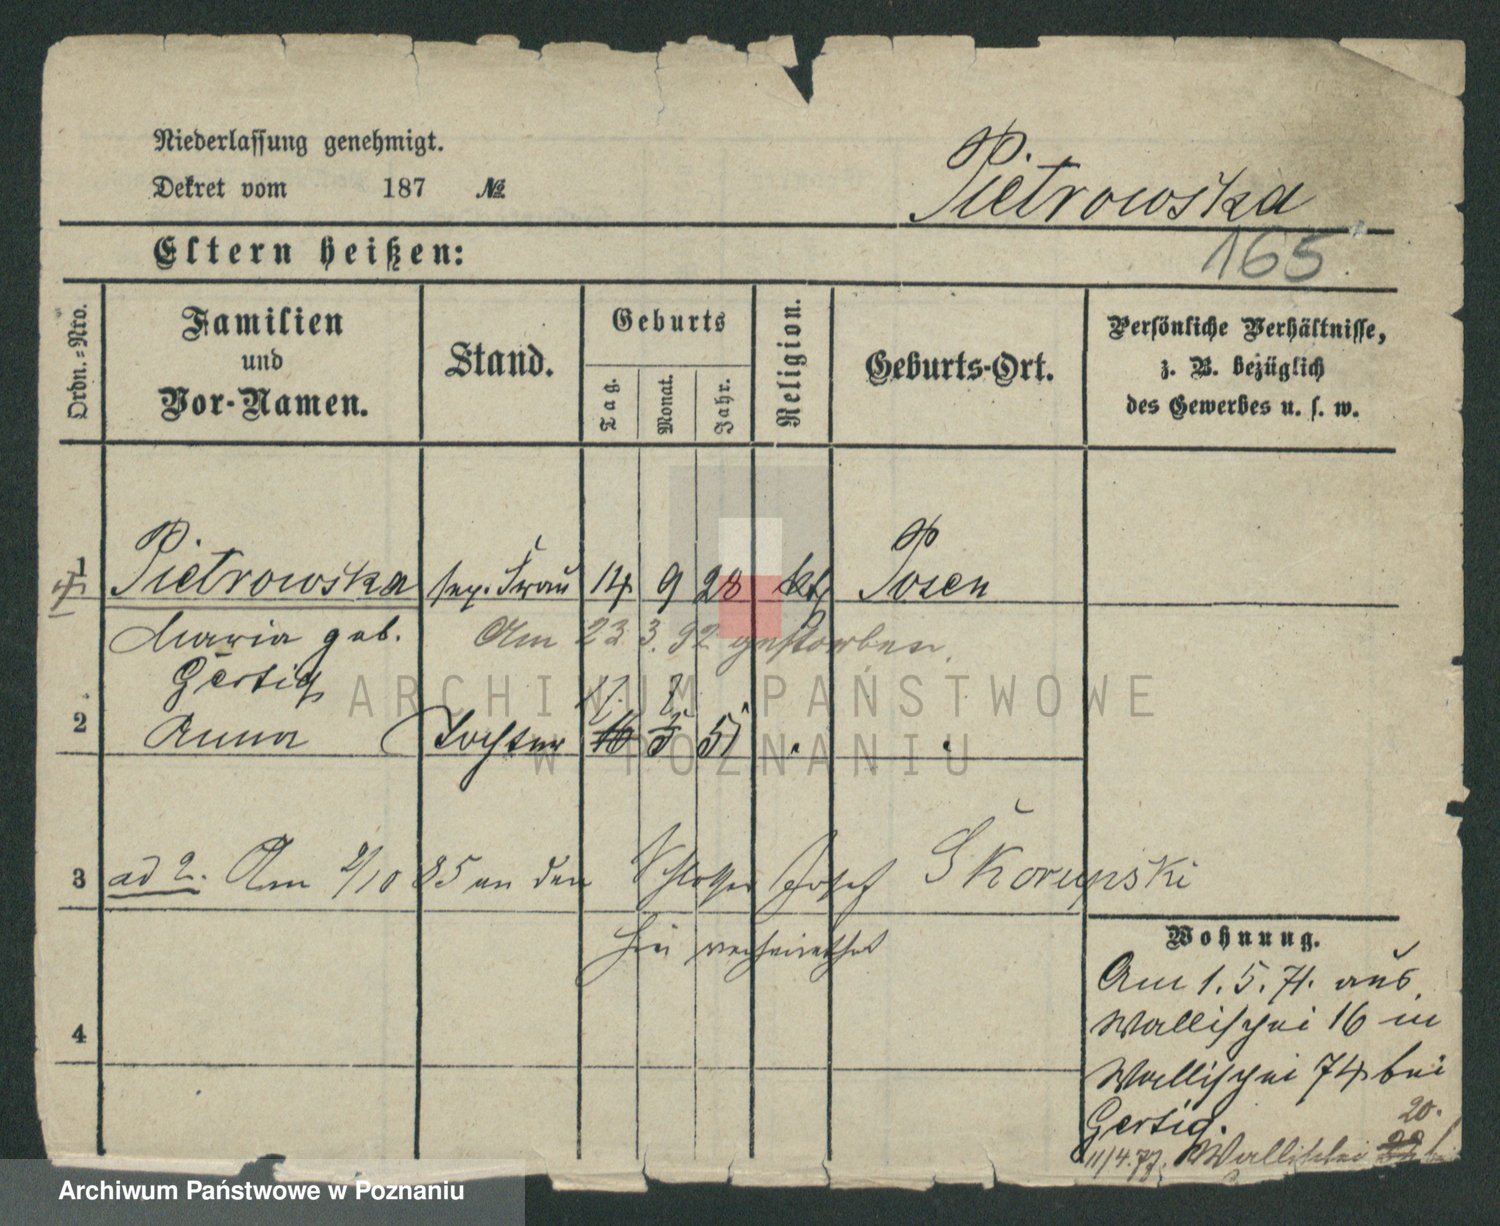 Niederlassung genehmigt.
Dekret vom 187 №
Pietrowska
165
Eltern heißen:
Ordn.-Nro.
Familien
und
Vor-Namen.
Stand.
Geburts
Tag.
Monat.
Jahr.
Religion.
Geburts-Ort.
Persönliche Verhältnisse,
z. B. bezüglich
des Gewerbes u. s. w.
1 Pietrowska sep. Frau 14 9 28 kth Posen
Maria geb. Am 23 3. 92 gestorben.
Gertig
2 Anna Tochter 16 5 51
3 ad 2. Am 2/10 85 an den Schlosser Josef Skorupski
hier verheirathet
4
Wohnung.
Am 1. 5. 71. aus
Wallischei 16 in
Wallischei 74 bei
Gertig.
20.
11/4.77. Wallischei 22 bei
ARCHIWUM PAŃSTWOWE
W POZNANIU
Archiwum Państwowe w Poznaniu